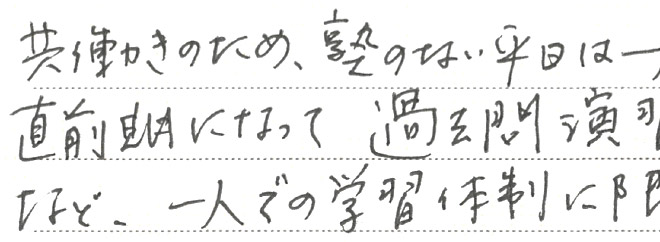 共働きのため、塾のない平日は一
直前期になって 過去問演習
など、一人での学習体制に限